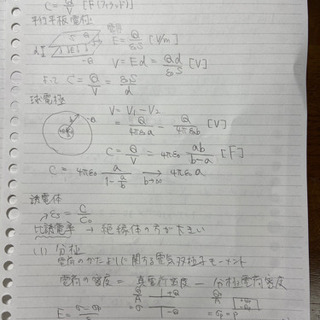 C = Q/V [F(ファラッド)]
平行平板電極
E = Q/ε₀S [V/m]
V = Ed = Qd/ε₀S [V]
よって C = Q/V = ε₀S/d
球電極
V = V₁ - V₂
= Q/4πε₀a - Q/4πε₀b [V]
C = Q/V = 4πε₀ ab/b-a [F]
C = 4πε₀ a/1-a/b b→∞ 4πε₀a
誘電体
εs = C/C₀
比誘電率 → 絶縁体の方が大きい
(1) 分極
電荷のかたよりに関する電気双極子モーメント
電荷の密度 = 真電荷密度 - 分極電荷密度